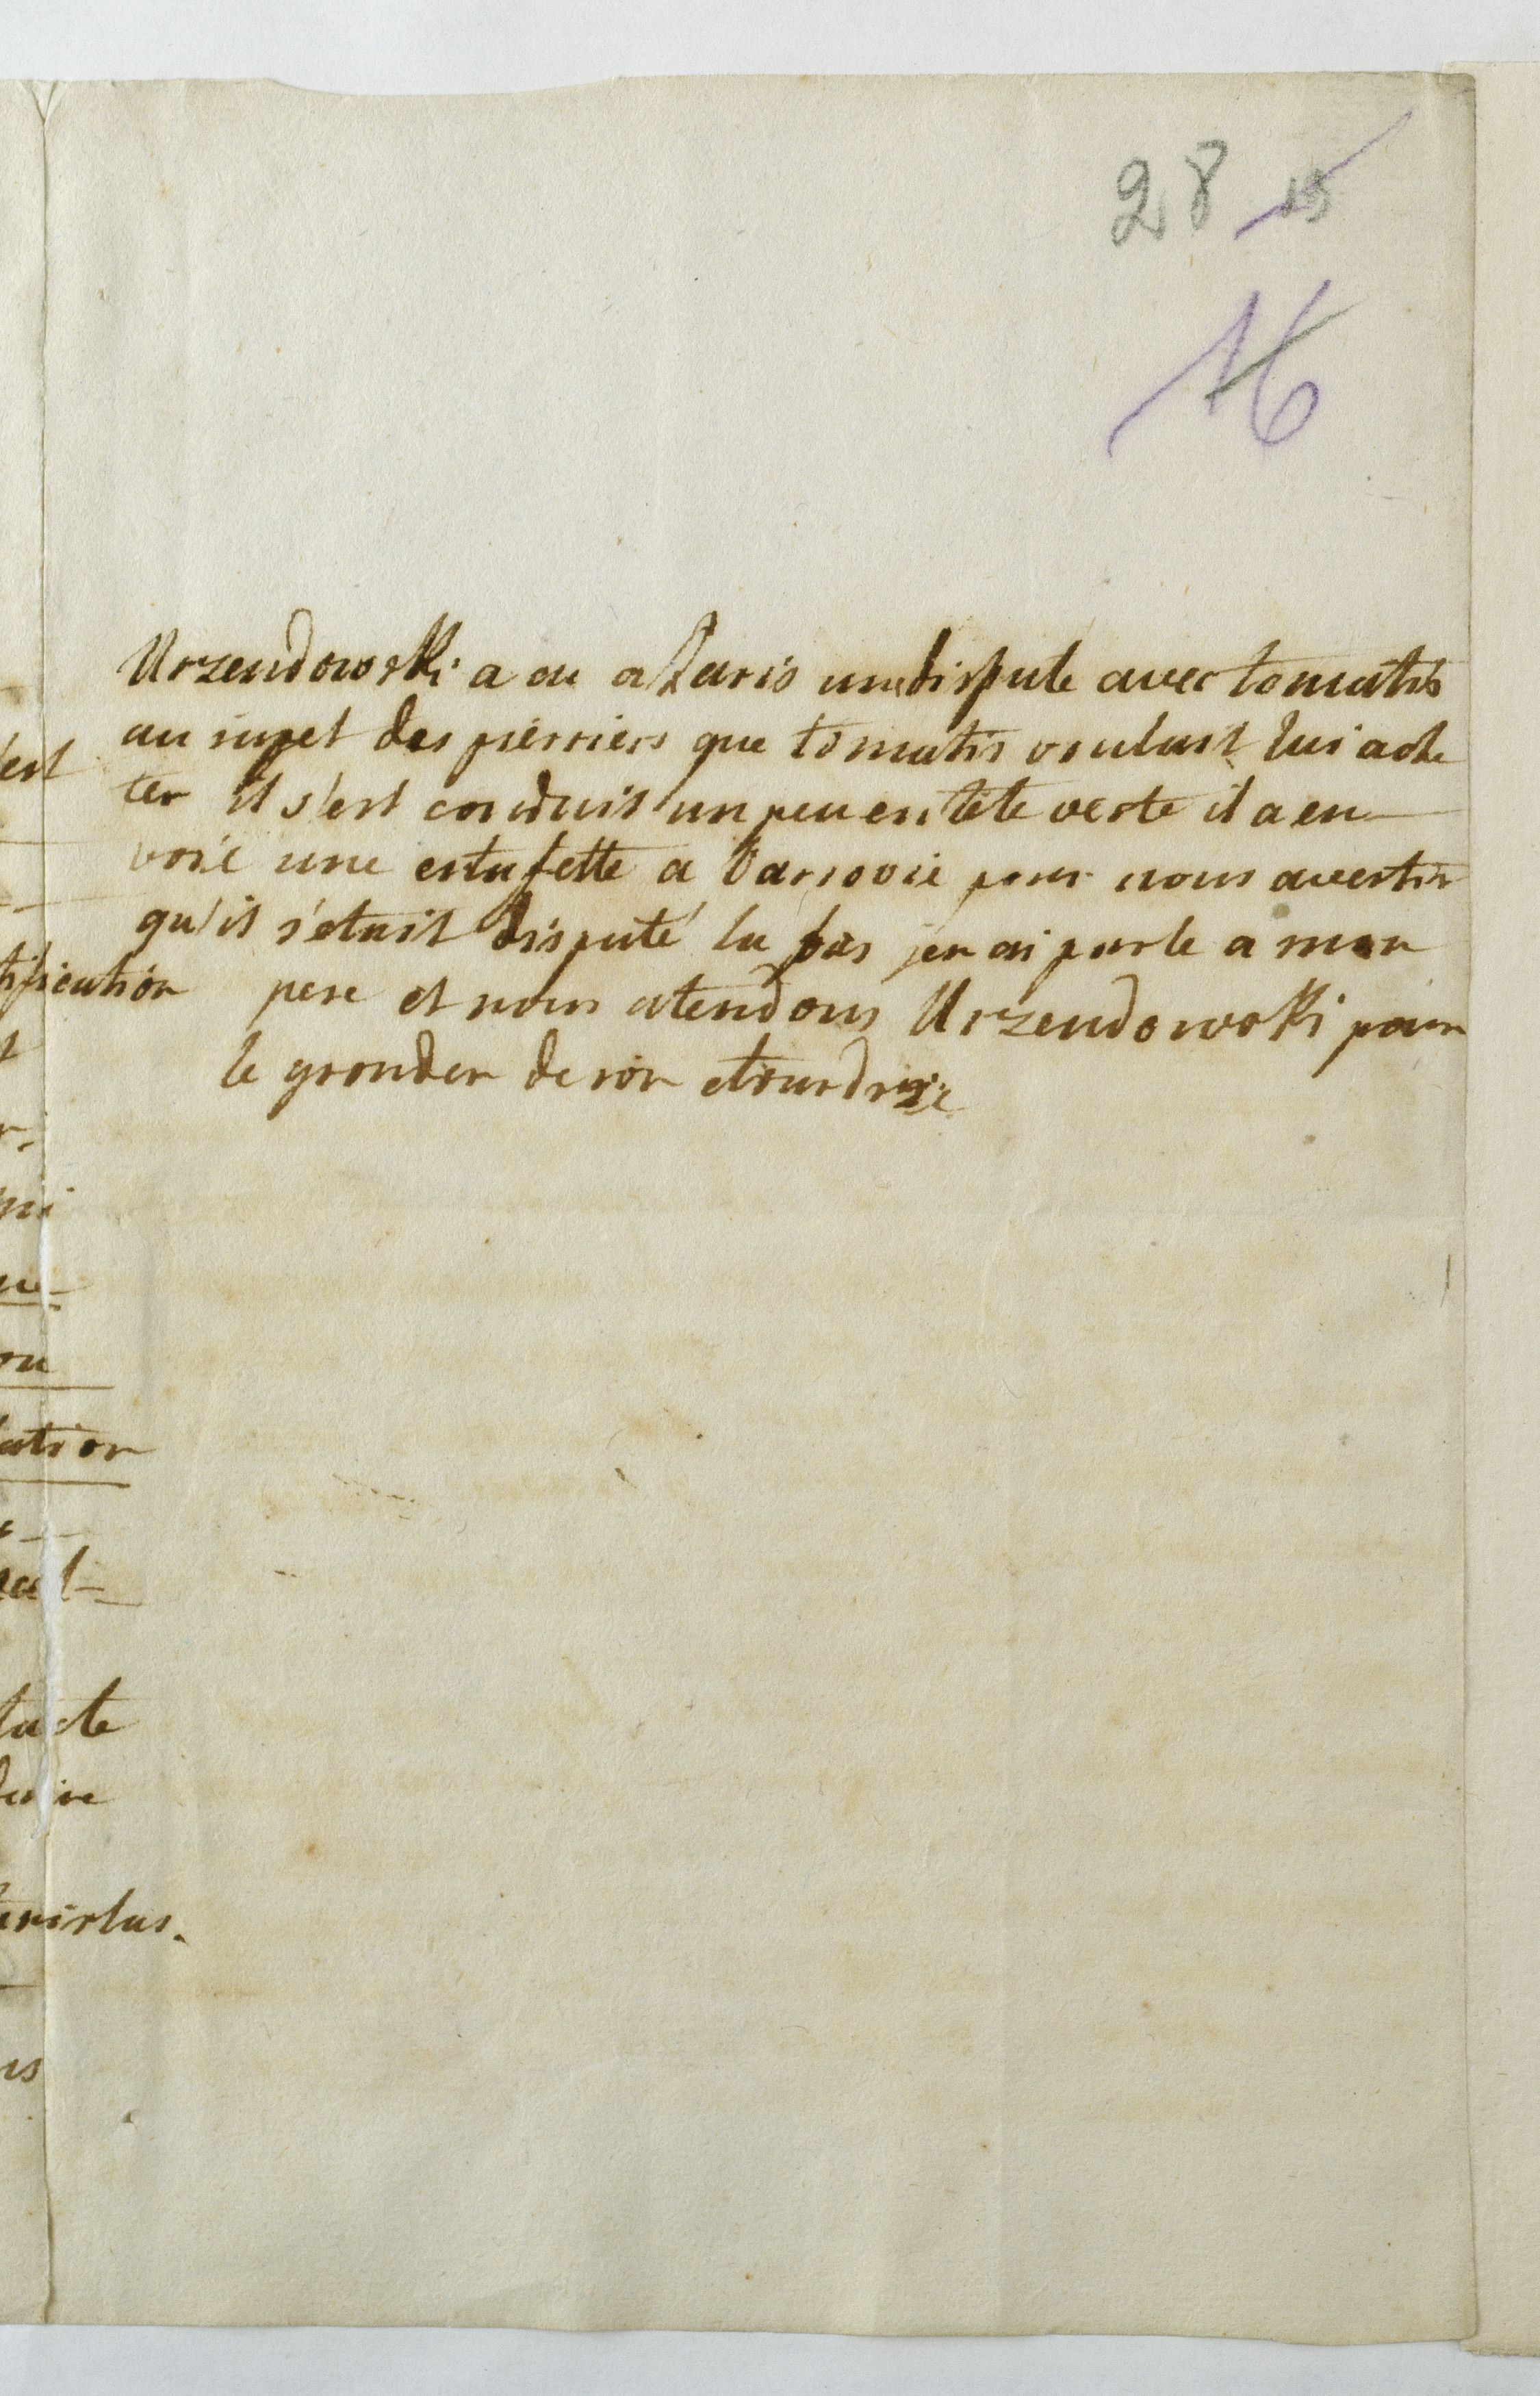 28 15
16
Urzendowski a eu a Paris une dispute avec tomatis
au sujet des pierriers que tomatis voulait lui ache
ter il s'est conduit un peu en tete verte il a en
voié une estafette a Varsovie pour nous avertir
qu'il s'etait disputé la bas j'en ai parle a mon
pere et nous atendons Urzendowski pour
le gronder de son etourdrie
est
tification
ni
ne
ou
lation
tacte
faire
anislas.
is